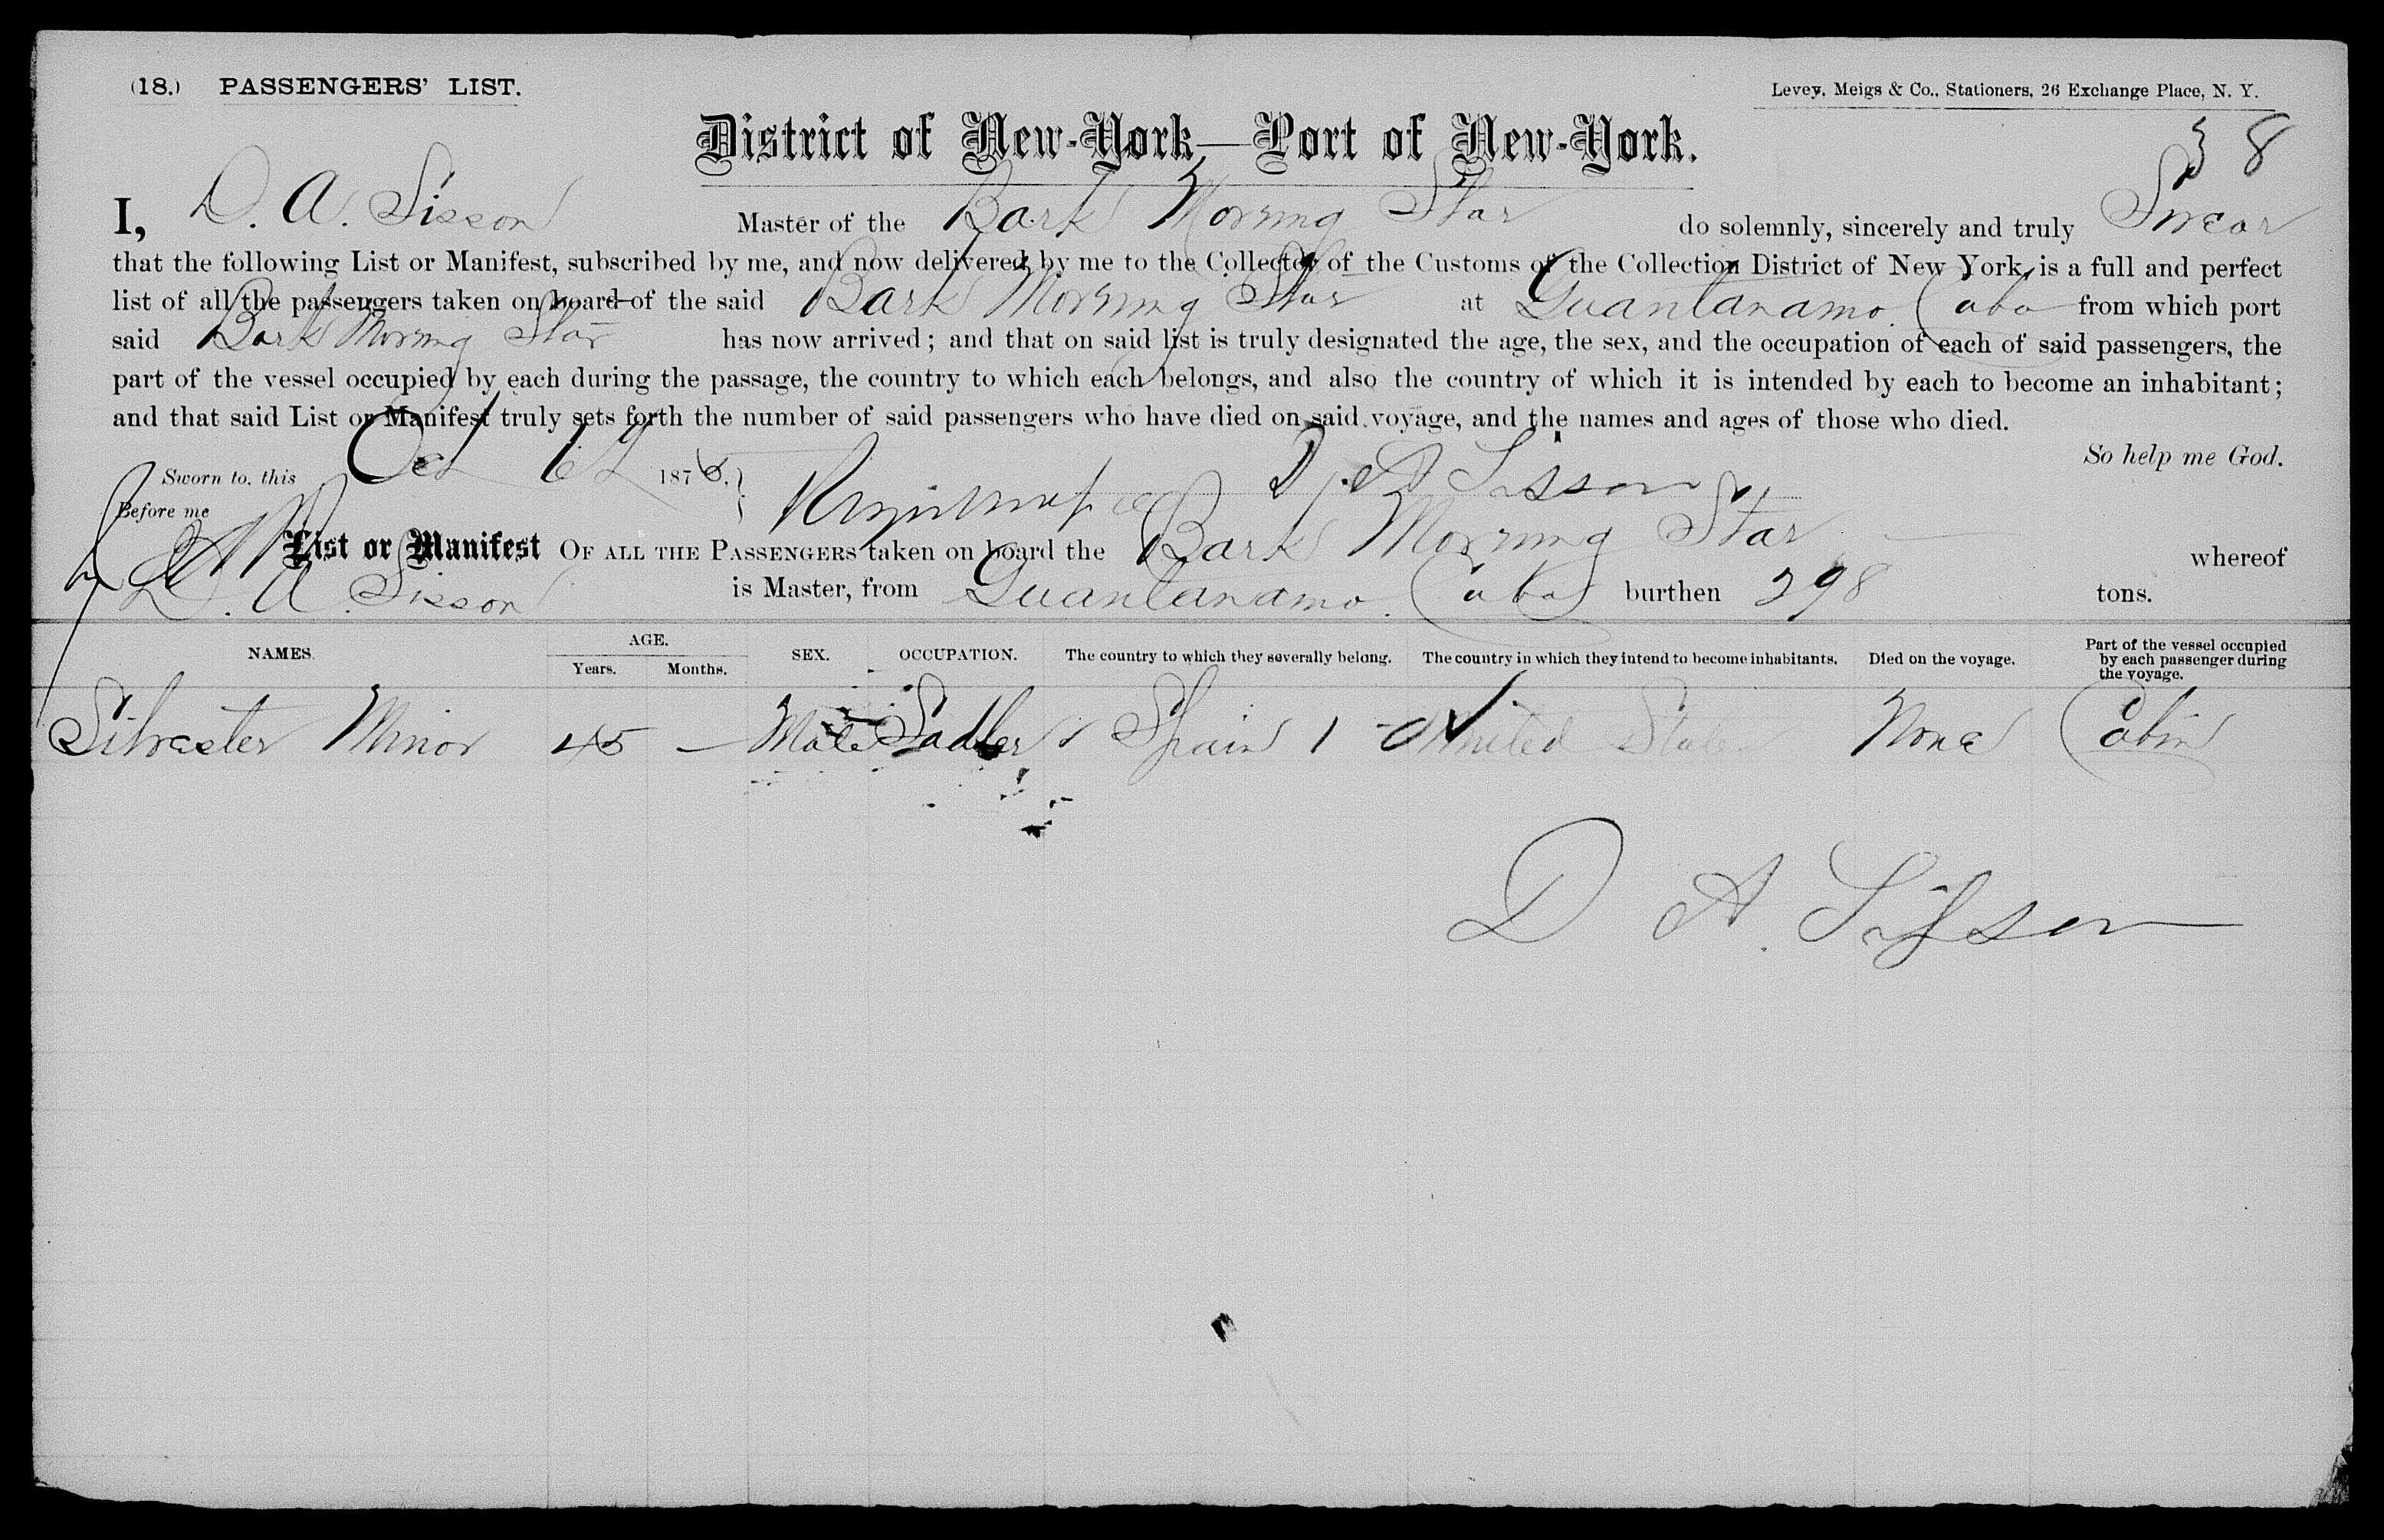 (18.) PASSENGERS' LIST.
Levey, Meigs & Co., Stationers, 26 Exchange Place, N. Y.
District of New-York—Port of New-York.
38
I, D. A. Sisson Master of the Bark Morning Star do solemnly, sincerely and truly Swear
that the following List or Manifest, subscribed by me, and now delivered by me to the Collector of the Customs of the Collection District of New York, is a full and perfect
list of all the passengers taken on board of the said Bark Morning Star at Guantanamo. Cuba from which port
said Bark Morning Star has now arrived; and that on said list is truly designated the age, the sex, and the occupation of each of said passengers, the
part of the vessel occupied by each during the passage, the country to which each belongs, and also the country of which it is intended by each to become an inhabitant;
and that said List or Manifest truly sets forth the number of said passengers who have died on said voyage, and the names and ages of those who died.
So help me God.
Sworn to, this Oct 1876. D. A Sisson
Before me
List or Manifest OF ALL THE PASSENGERS taken on board the Bark Morning Star whereof
D. A. Sisson is Master, from Guantanamo. Cuba burthen 298 tons.
NAMES. AGE. Years. Months. SEX. OCCUPATION. The country to which they severally belong. The country in which they intend to become inhabitants. Died on the voyage. Part of the vessel occupied by each passenger during the voyage.
Silvester Minor 45 — Male Sadler Spain United States None Cabin
D A. Sisson